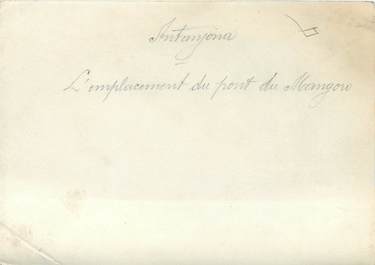 Antanjona
L'emplacement du pont du Mangoro